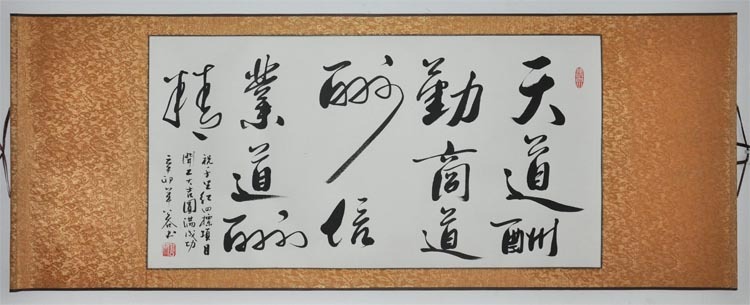 天道酬
勤商道
酬信
業道酬
精
祝 红四標項目
開工大吉圓滿成功
辛卯年 書